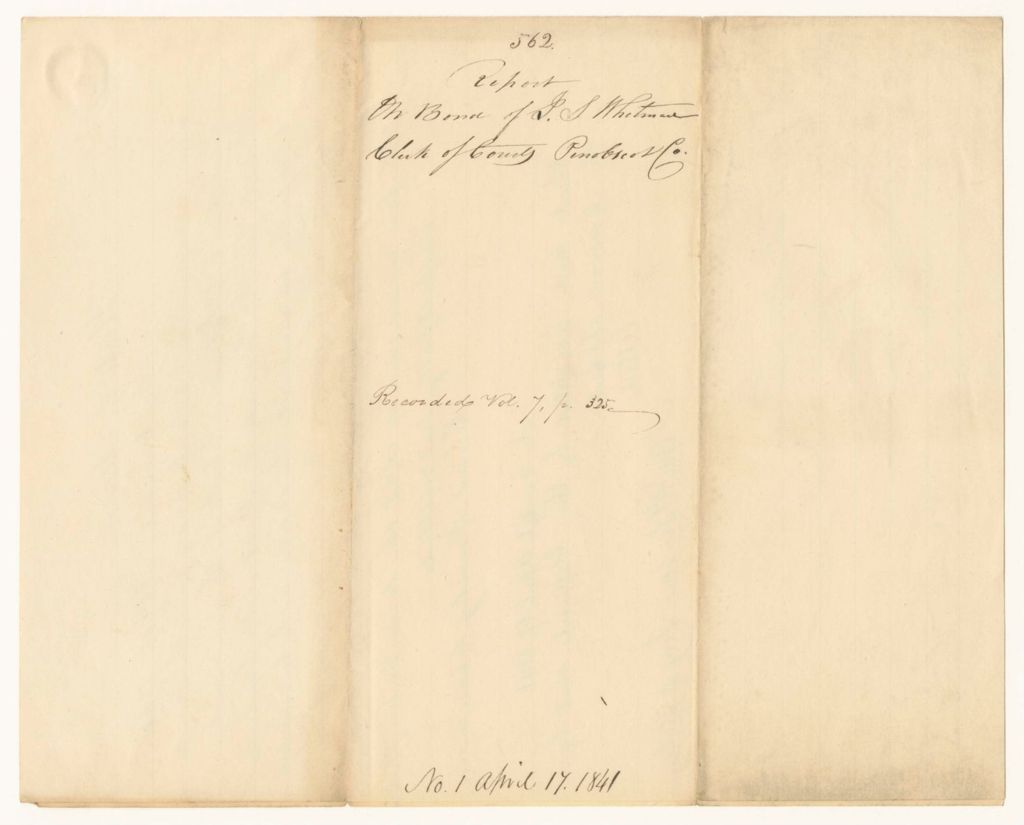 562.
Report
On Bond of J. S Whitman
Clerk of Courts Penobscot Co.
Recorded Vol. 7, p. 325
No. 1 April 17. 1841